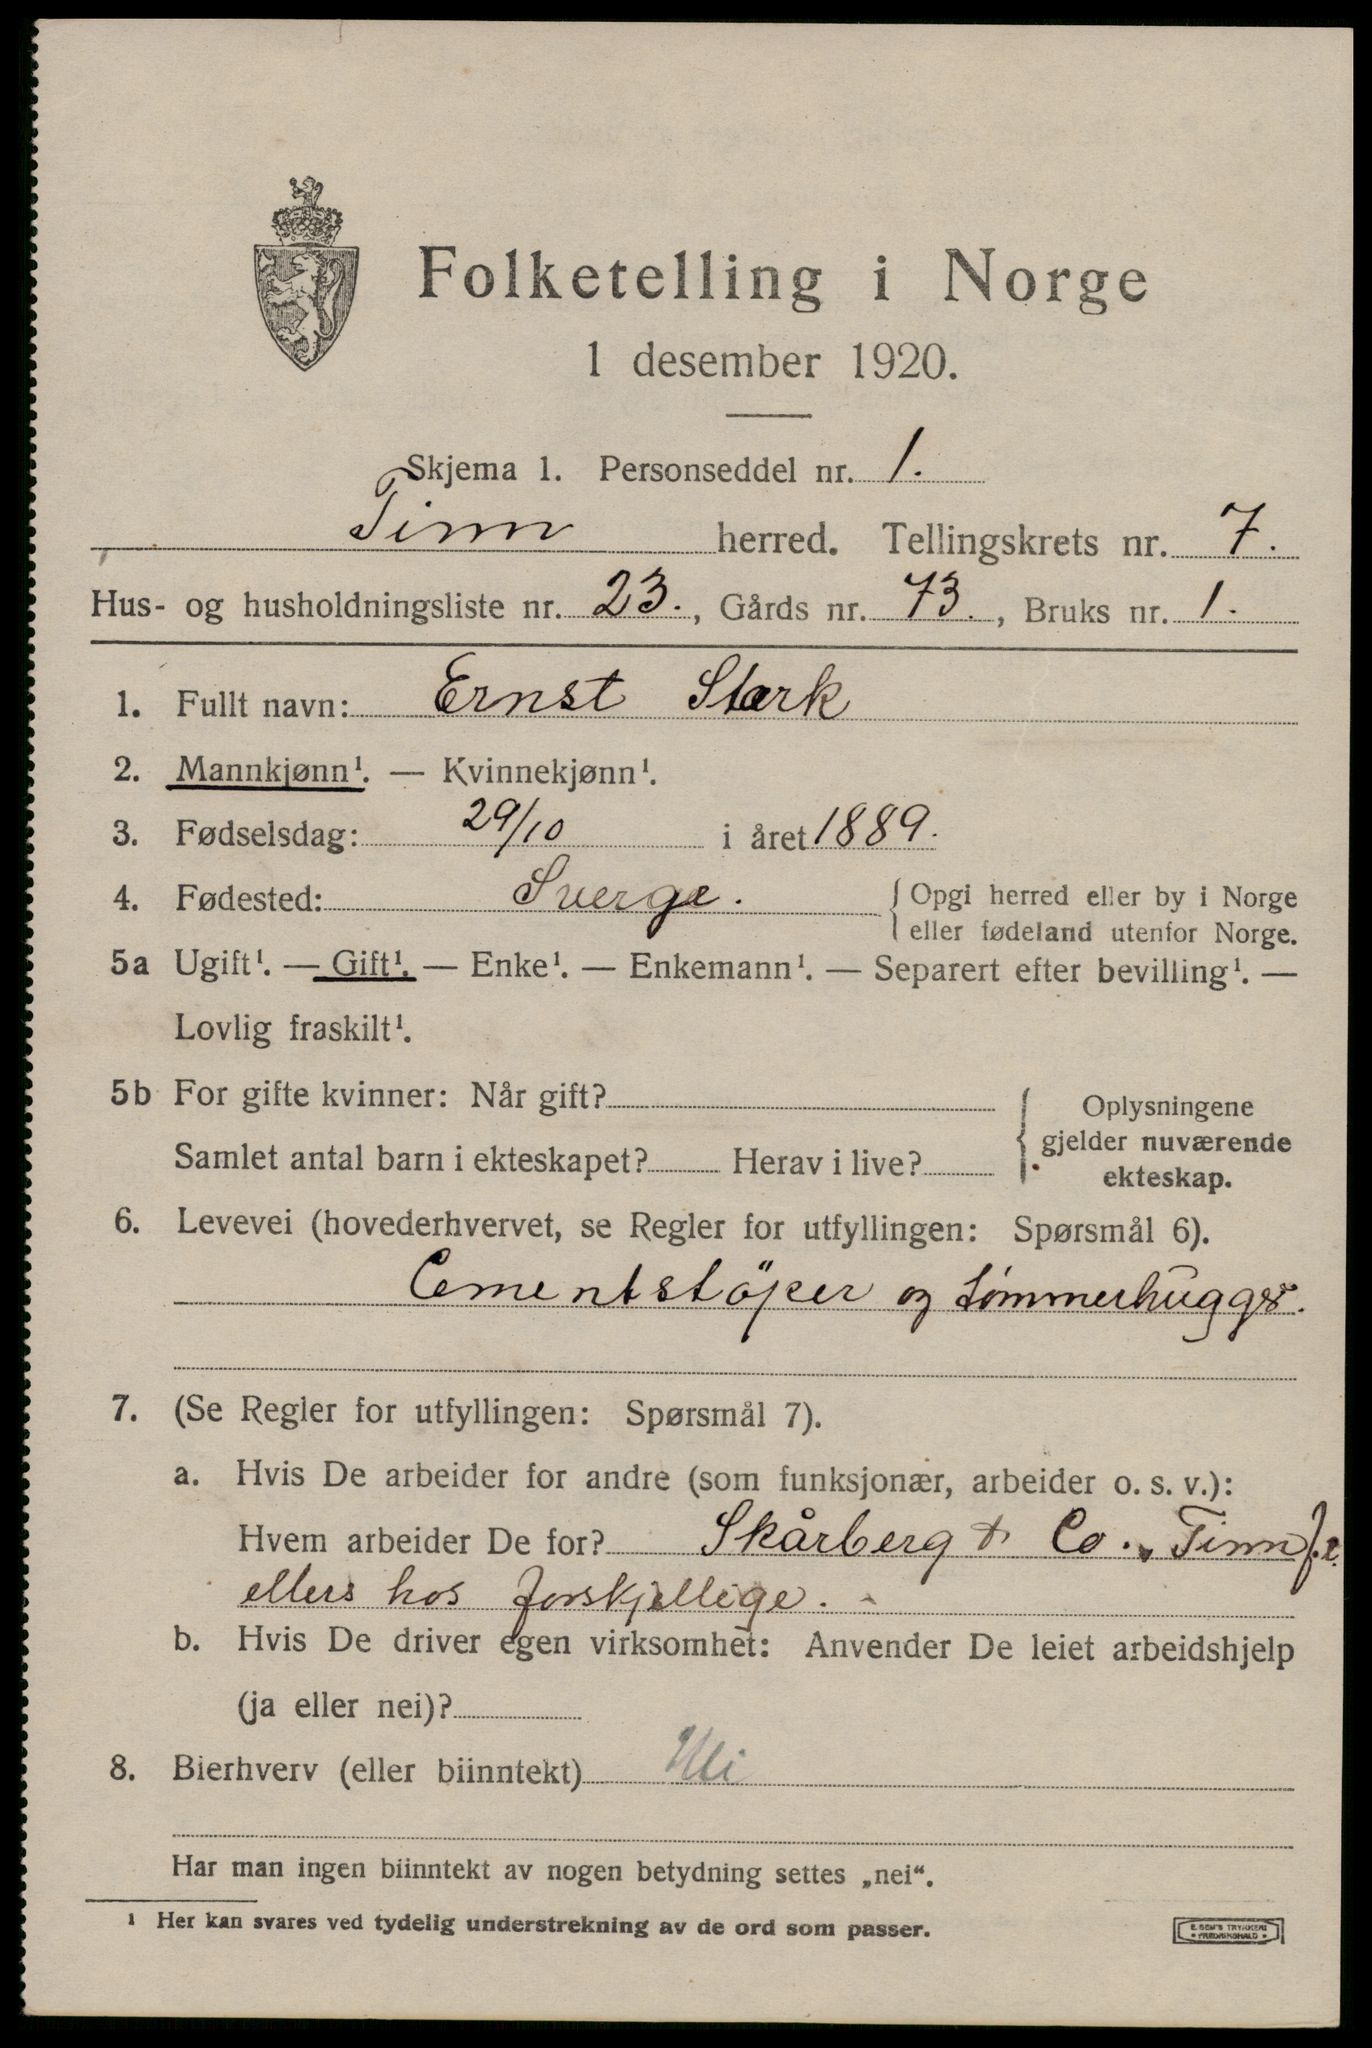 Folketelling i Norge
1 desember 1920.
Skjema 1. Personseddel nr. 1.
Tinn herred. Tellingskrets nr. 7.
Hus- og husholdningsliste nr. 23., Gårds nr. 73., Bruks nr. 1.
1. Fullt navn: Ernst Stark
2. Mannkjønn¹. — Kvinnekjønn¹.
3. Fødselsdag: 29/10 i året 1889.
4. Fødested: Sverge. { Opgi herred eller by i Norge
eller fødeland utenfor Norge.
5a Ugift¹. — Gift¹. — Enke¹. — Enkemann¹. — Separert efter bevilling¹. —
Lovlig fraskilt¹.
5b For gifte kvinner: Når gift?
Samlet antal barn i ekteskapet? Herav i live?
{ Oplysningene
gjelder nuværende
ekteskap.
6. Levevei (hovederhvervet, se Regler for utfyllingen: Spørsmål 6).
Cementstöper og tømmerhugger.
7. (Se Regler for utfyllingen: Spørsmål 7).
a. Hvis De arbeider for andre (som funksjonær, arbeider o. s. v.):
Hvem arbeider De for? Skårberg & Co., Tinn
ellers hos forskjellige.
b. Hvis De driver egen virksomhet: Anvender De leiet arbeidshjelp
(ja eller nei)?
8. Bierhverv (eller biinntekt) Nei
Har man ingen biinntekt av nogen betydning settes „nei“.
¹ Her kan svares ved tydelig understrekning av de ord som passer.
E. SEM'S TRYKKERI
FREDRIKSHALD